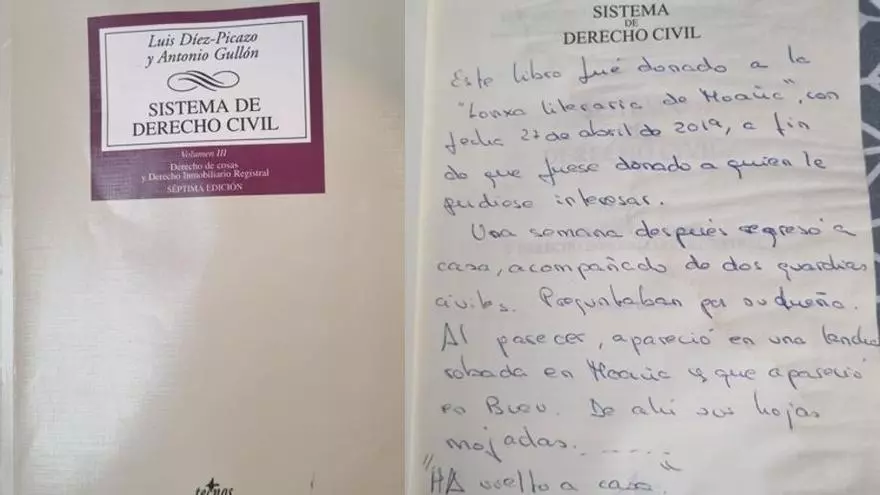 Luis Díez-Picazo
y Antonio Gullón
SISTEMA DE
DERECHO CIVIL
Volumen III
Derecho de cosas
y Derecho Inmobiliario Registral
SÉPTIMA EDICIÓN
tecnos
SISTEMA
DE
DERECHO CIVIL
Este libro fué donado a la
"Lonxa literaria de Moaña", con
fecha 27 de abril de 2019, a fin
do que fuese donado a quien le
pudiese interesar.
Una semana después regresó a
casa, acompañado de dos guardias
civiles. Preguntaban por su dueño.
Al parecer, apareció en una lancha
robada en Moaña y que apareció
en Bueu. De ahí sus hojas
mojadas......
"HA vuelto a casa"